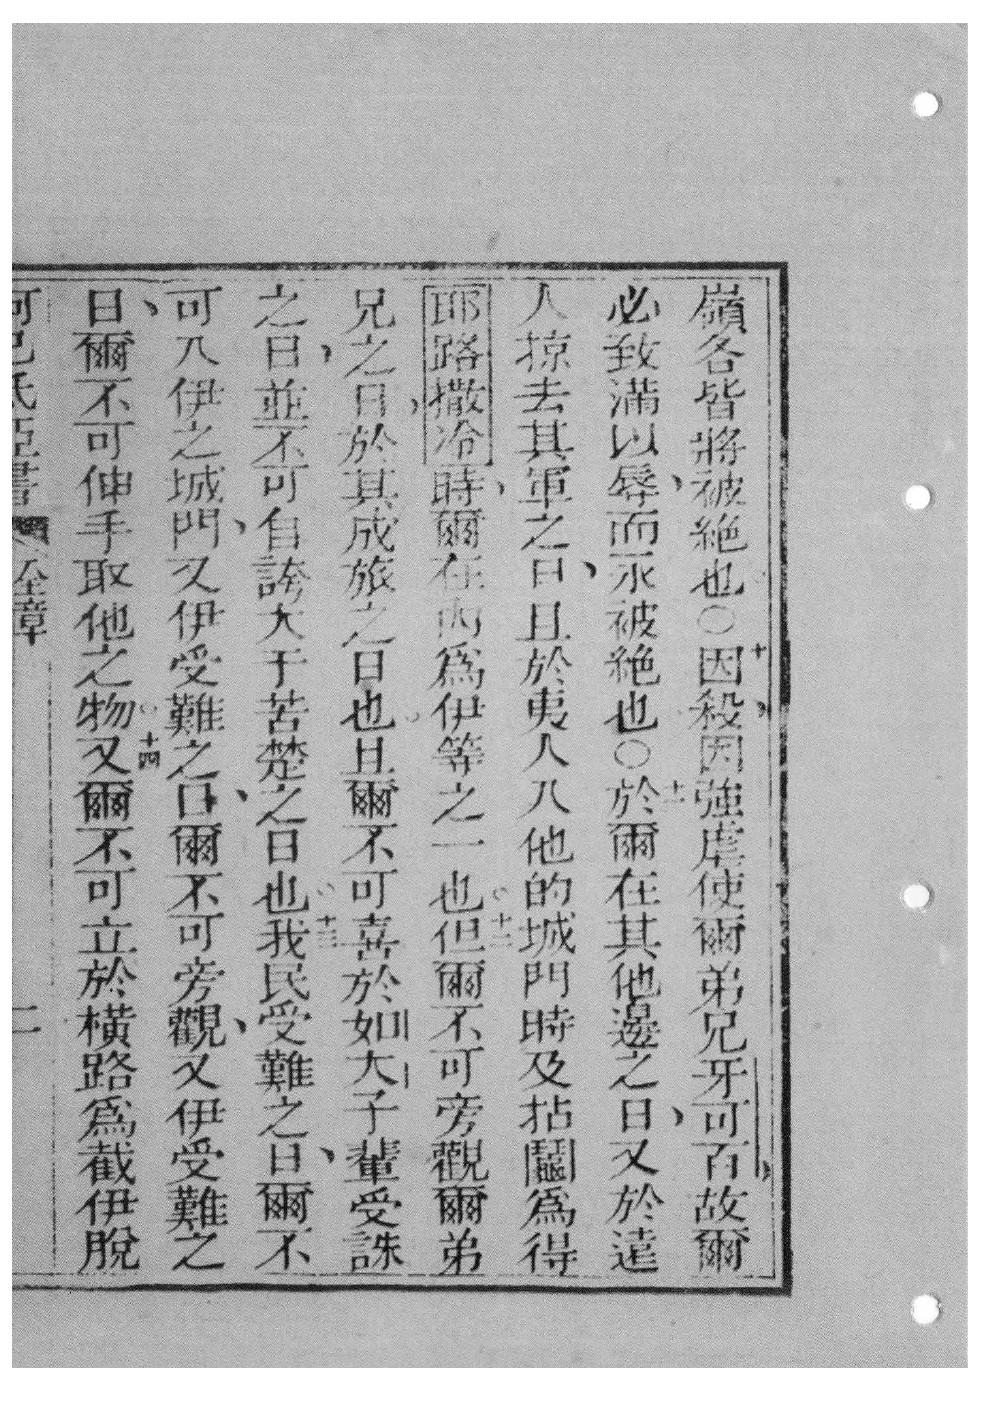 嶺各皆將被絕也○十因殺因強虐使爾弟兄牙可百故爾
必致滿以辱而永被絕也○十一於爾在其他邊之日又於遠
人掠去其軍之日且於夷人入他的城門時及拈鬮爲得
耶路撒冷時爾在內爲伊等之一也十二但爾不可旁觀爾弟
兄之日於其成旅之日也且爾不可喜於如大子輩受誅
之日並不可自誇大于苦楚之日也十三我民受難之日爾不
可入伊之城門又伊受難之日爾不可旁觀又伊受難之
日爾不可伸手取他之物十四又爾不可立於橫路爲截伊脫
阿巴氏亞書 全章 二